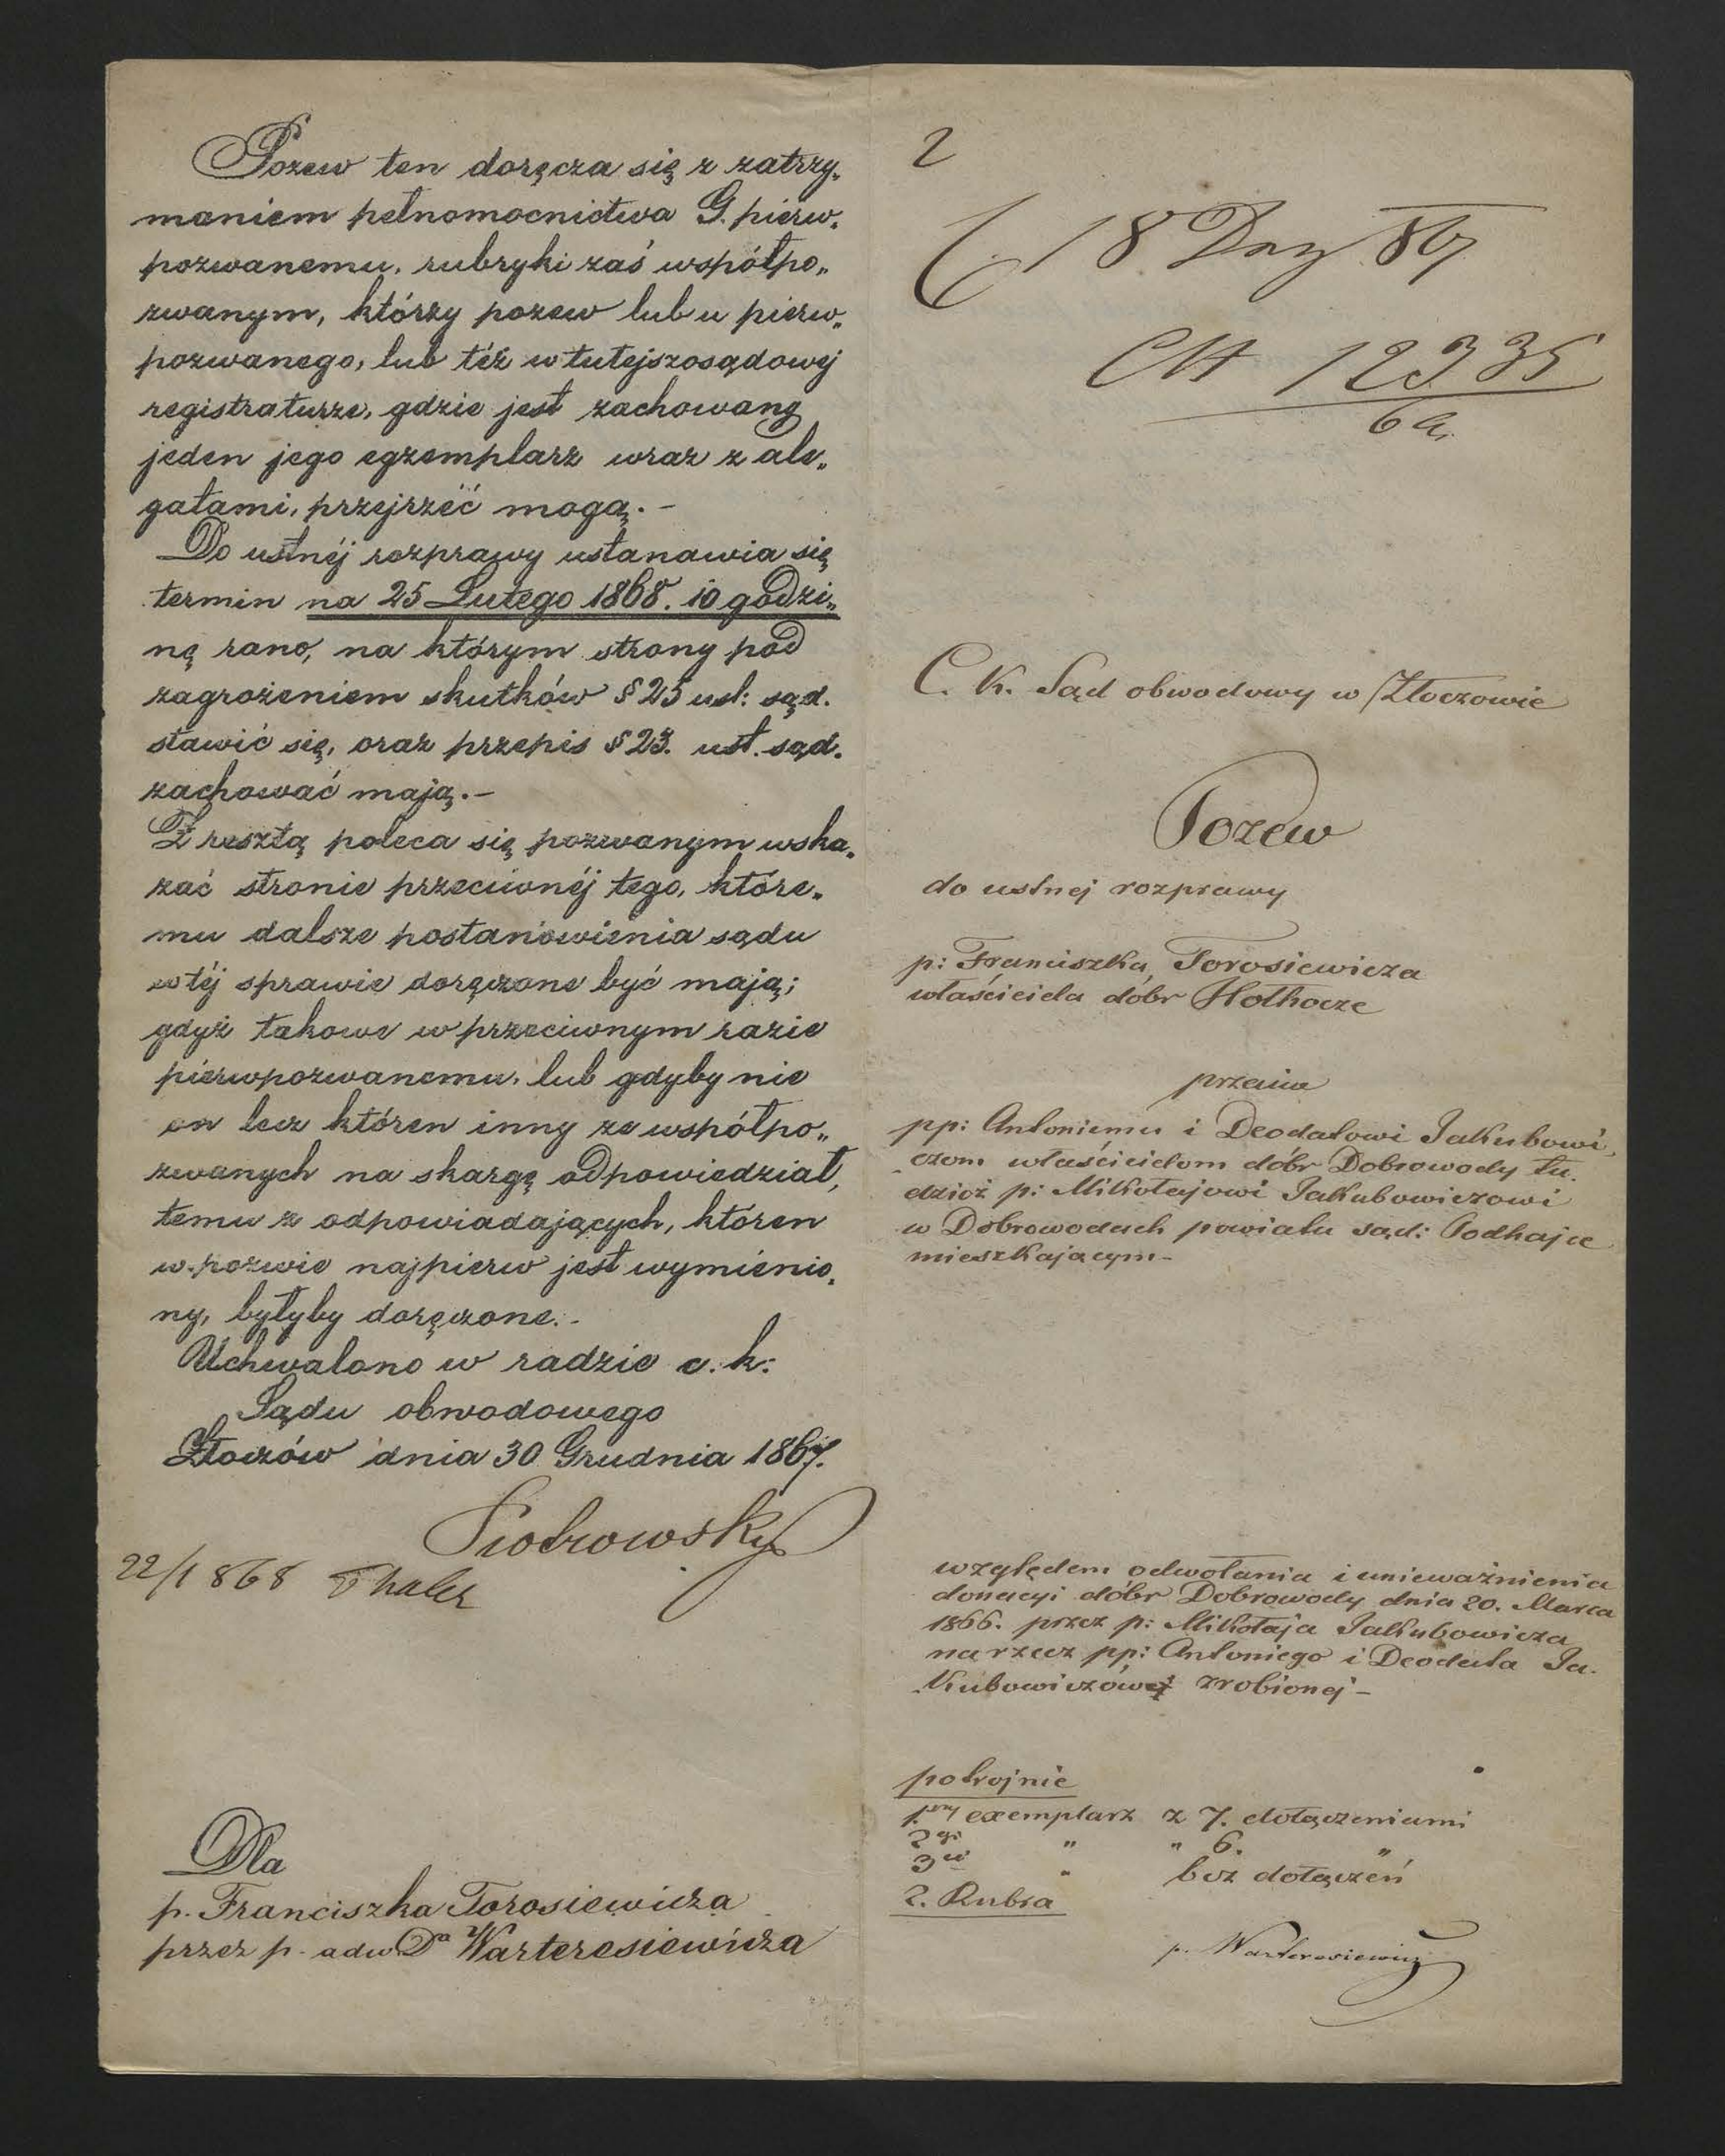 Pozew ten doręcza się z zatrzy„
maniem pełnomocnictwa G. pierw„
pozwanemu, rubryki zaś współpo„
zwanym, którzy pozew lub u pierw„
pozwanego, lub téż w tutejszosądowej
registraturze, gdzie jest zachowany
jeden jego egzemplarz wraz z ale„
gatami, przejrzéć mogą.-
Do ustnéj rozprawy ustanawia się
termin na 25 Lutego 1868. 10 godzi„
nę rano, na którym strony pod
zagrożeniem skutków § 25 ust: sąd.
stawić się, oraz przepis § 23. ust. sąd.
zachować mają.-
Z resztą poleca się pozwanym wska„
zać stronie przeciwnéj tego, które„
mu dalsze postanowienia sądu
w téj sprawie doręczone być mają;
gdyż takowe w przeciwnym razie
pierwpozwanemu, lub gdyby nie
on lecz któren inny ze współpo„
zwanych na skargę odpowiedział,
temu z odpowiadających, któren
w pozwie najpierw jest wymienio„
ny, byłyby doręczone.-
Uchwalono w radzie c. k:
Sądu obwodowego
Złoczów dnia 30 Grudnia 1867.
Piotrowsky
22/1 868 Thaler
Dla
p. Franciszka Torosiewicza
przez p. adw Dª Warteresiewicza
2
18 Dez 867
12335
C. K. Sąd obwodowy w Złoczowie
Pozew
do ustnej rozprawy
p: Franciszka Torosiewicza
właściciela dóbr Hołhocze
przeciw
pp: Antoniemu i Deodatowi Jakubowi„
czom właścicielom dóbr Dobrowody tu„
dzież p: Mikołajowi Jakubowiczowi
w Dobrowodach powiatu sąd: Podhajce
mieszkającym-
względem odwołania i unieważnienia
donacyi dóbr Dobrowody dnia 20. Marca
1866. przez p: Mikołaja Jakubowicza
na rzecz pp: Antoniego i Deodata Ja„
kubowiczów zrobionej-
potrojnie
1szy exemplarz z 7. dołączeniami
2gi " " 6. "
3ci " bez dołączeń
2. Rubra
p. Warteresiewicz